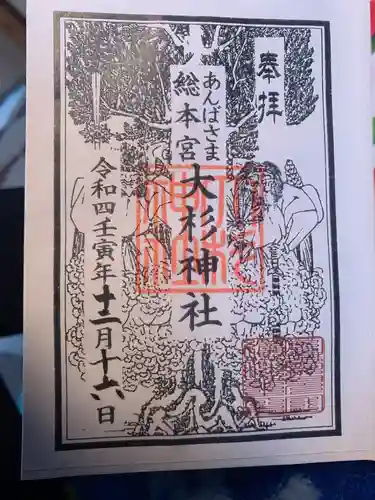 奉拝
あんばさま
総本宮
大杉神社
令和四壬寅年十二月十六日